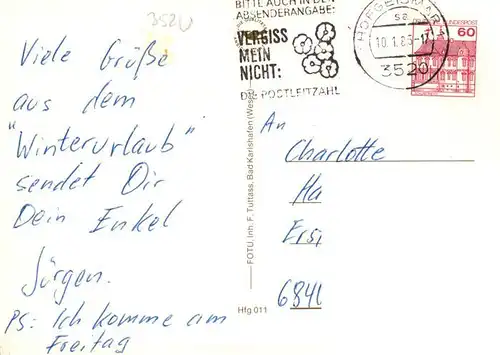 3520
Viele Grüße
aus dem
"Winterurlaub"
sendet Dir
Dein Enkel
Jürgen.
PS: Ich komme am
Freitag
BITTE AUCH IN DER
ABSENDERANGABE:
VERGISS
MEIN
NICHT:
DIE POSTLEITZAHL
HOFGEISMAR 1
sa
10.1.83-17
3520
BUNDESPOST
60
FOTU, Inh. F. Tuttass, Bad Karlshafen (Weser)
Hfg 011
An
Charlotte
Ha
Ersi
6841